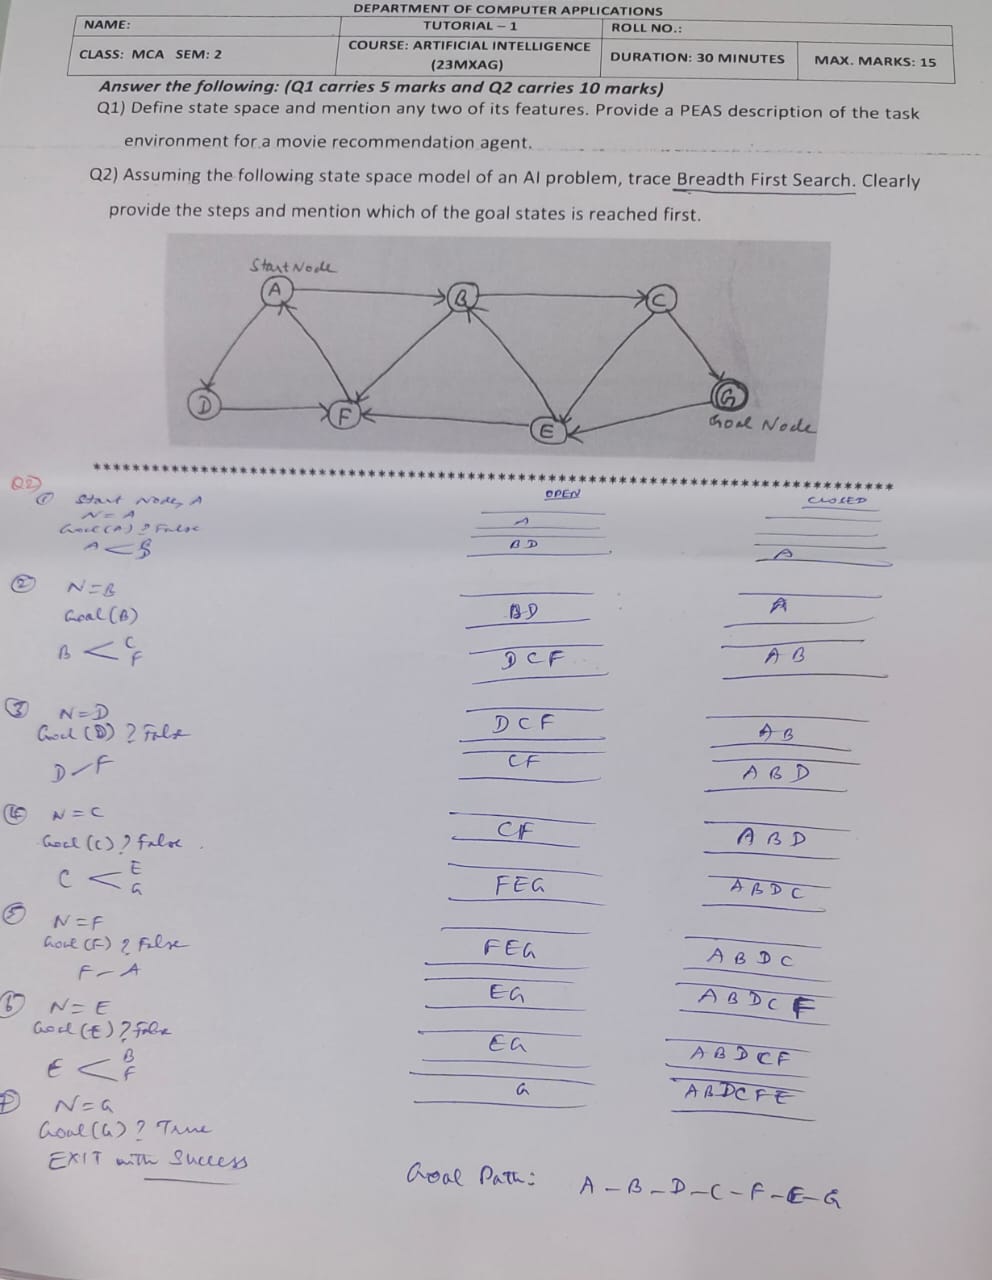 DEPARTMENT OF COMPUTER APPLICATIONS
NAME: TUTORIAL – 1 ROLL NO.:
CLASS: MCA SEM: 2 COURSE: ARTIFICIAL INTELLIGENCE (23MXAG) DURATION: 30 MINUTES MAX. MARKS: 15
Answer the following: (Q1 carries 5 marks and Q2 carries 10 marks)
Q1) Define state space and mention any two of its features. Provide a PEAS description of the task
environment for a movie recommendation agent.
Q2) Assuming the following state space model of an AI problem, trace Breadth First Search. Clearly
provide the steps and mention which of the goal states is reached first.
Start Node
A B C
D F E G
Goal Node
************************************************************************************
Q2)
OPEN CLOSED
① Start Node, A
N = A A
Goal(A) ? False
A < B D B D A
② N = B B D A
Goal (B)
B < C F D C F A B
③ N = D D C F A B
Goal (D) ? False
D - F C F A B D
④ N = C C F A B D
Goal (C) ? False
C < E G F E G A B D C
⑤ N = F F E G A B D C
Goal (F) ? False
F - A E G A B D C F
⑥ N = E E G A B D C F
Goal (E) ? False
E < B F G A B D C F E
⑦ N = G
Goal (G) ? True
EXIT with Success
Goal Path: A - B - D - C - F - E - G